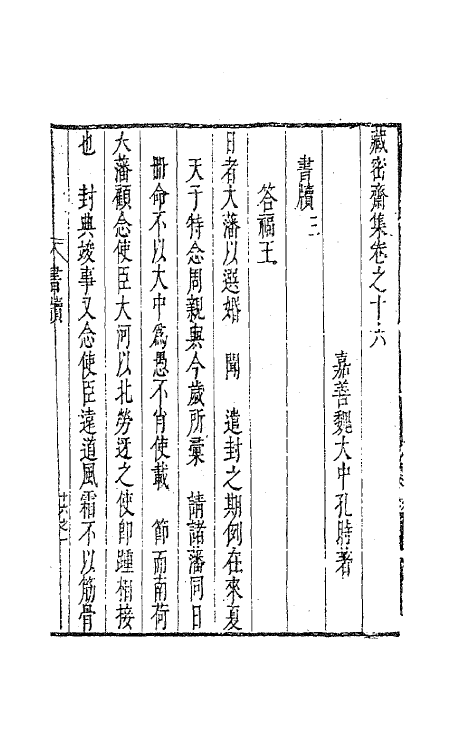 藏密齋集卷之十六
嘉善魏大中孔時著
書牘三
答福王
日者大藩以選婚 聞 遣封之期例在來夏
天子特念周親與今歲所彙 請諸藩同日
冊命不以大中爲愚不肖使載 節而南荷
大藩顧念使臣大河以北勞迓之使卽踵相接
也 封典竣事又念使臣遠道風霜不以筋骨
書牘